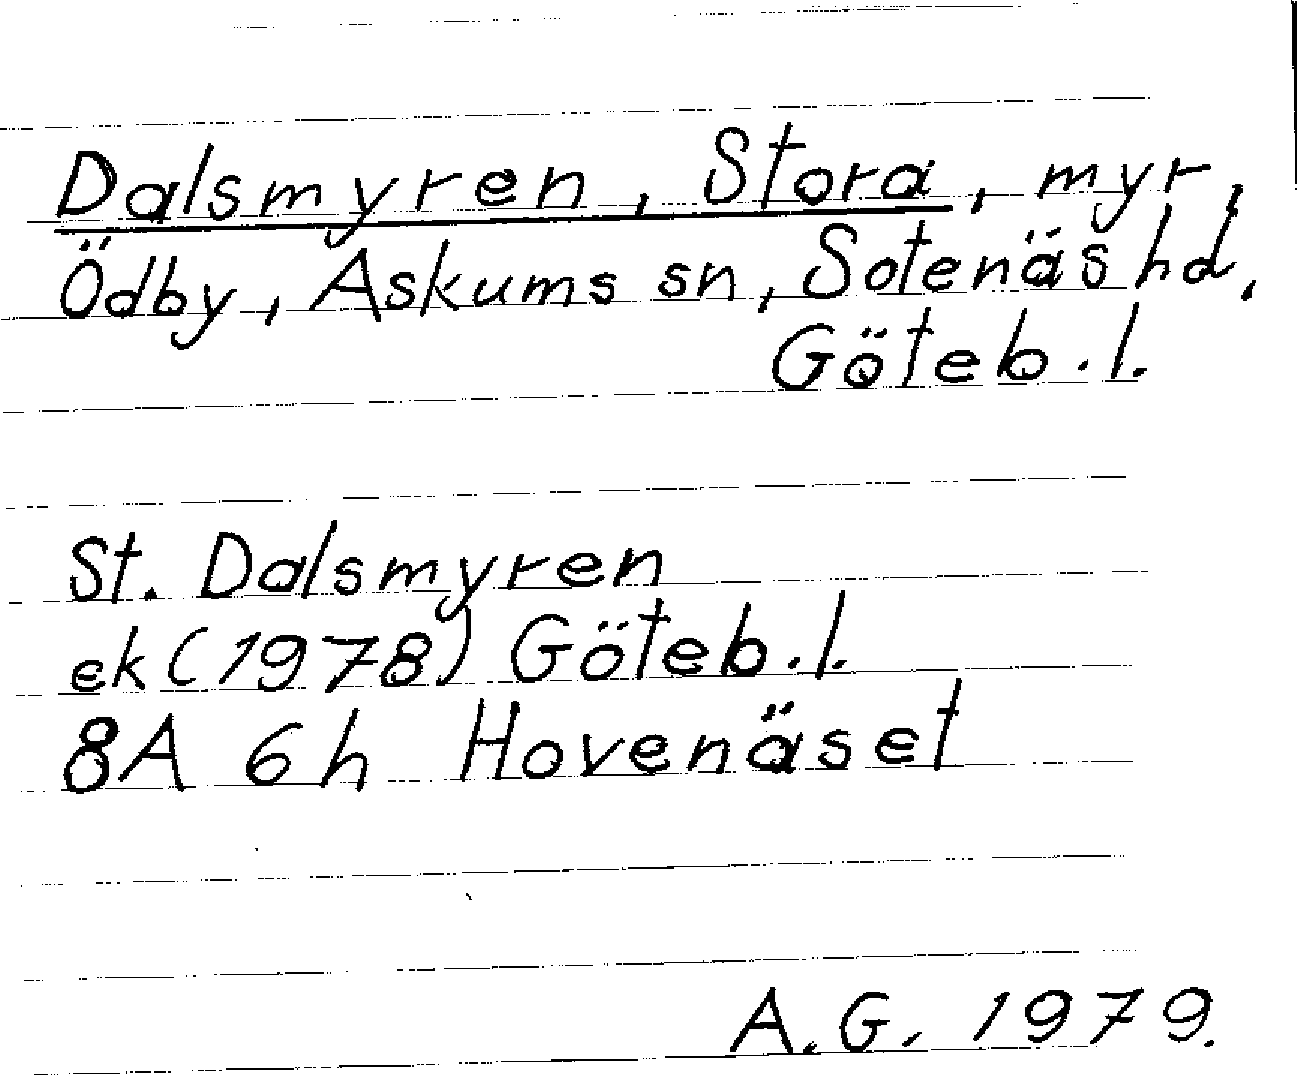 Dalsmyren, Stora, myr,
Ödby, Askums sn, Sotenäs hd,
Göteb. l.
St. Dalsmyren
ek (1978) Göteb. l.
8A 6h Hovenäset
A.G. 1979.